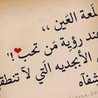 لمعة العين ،،
ند رؤية من تحب❤!'
الأبجديه التي لا تنطق
شفآه